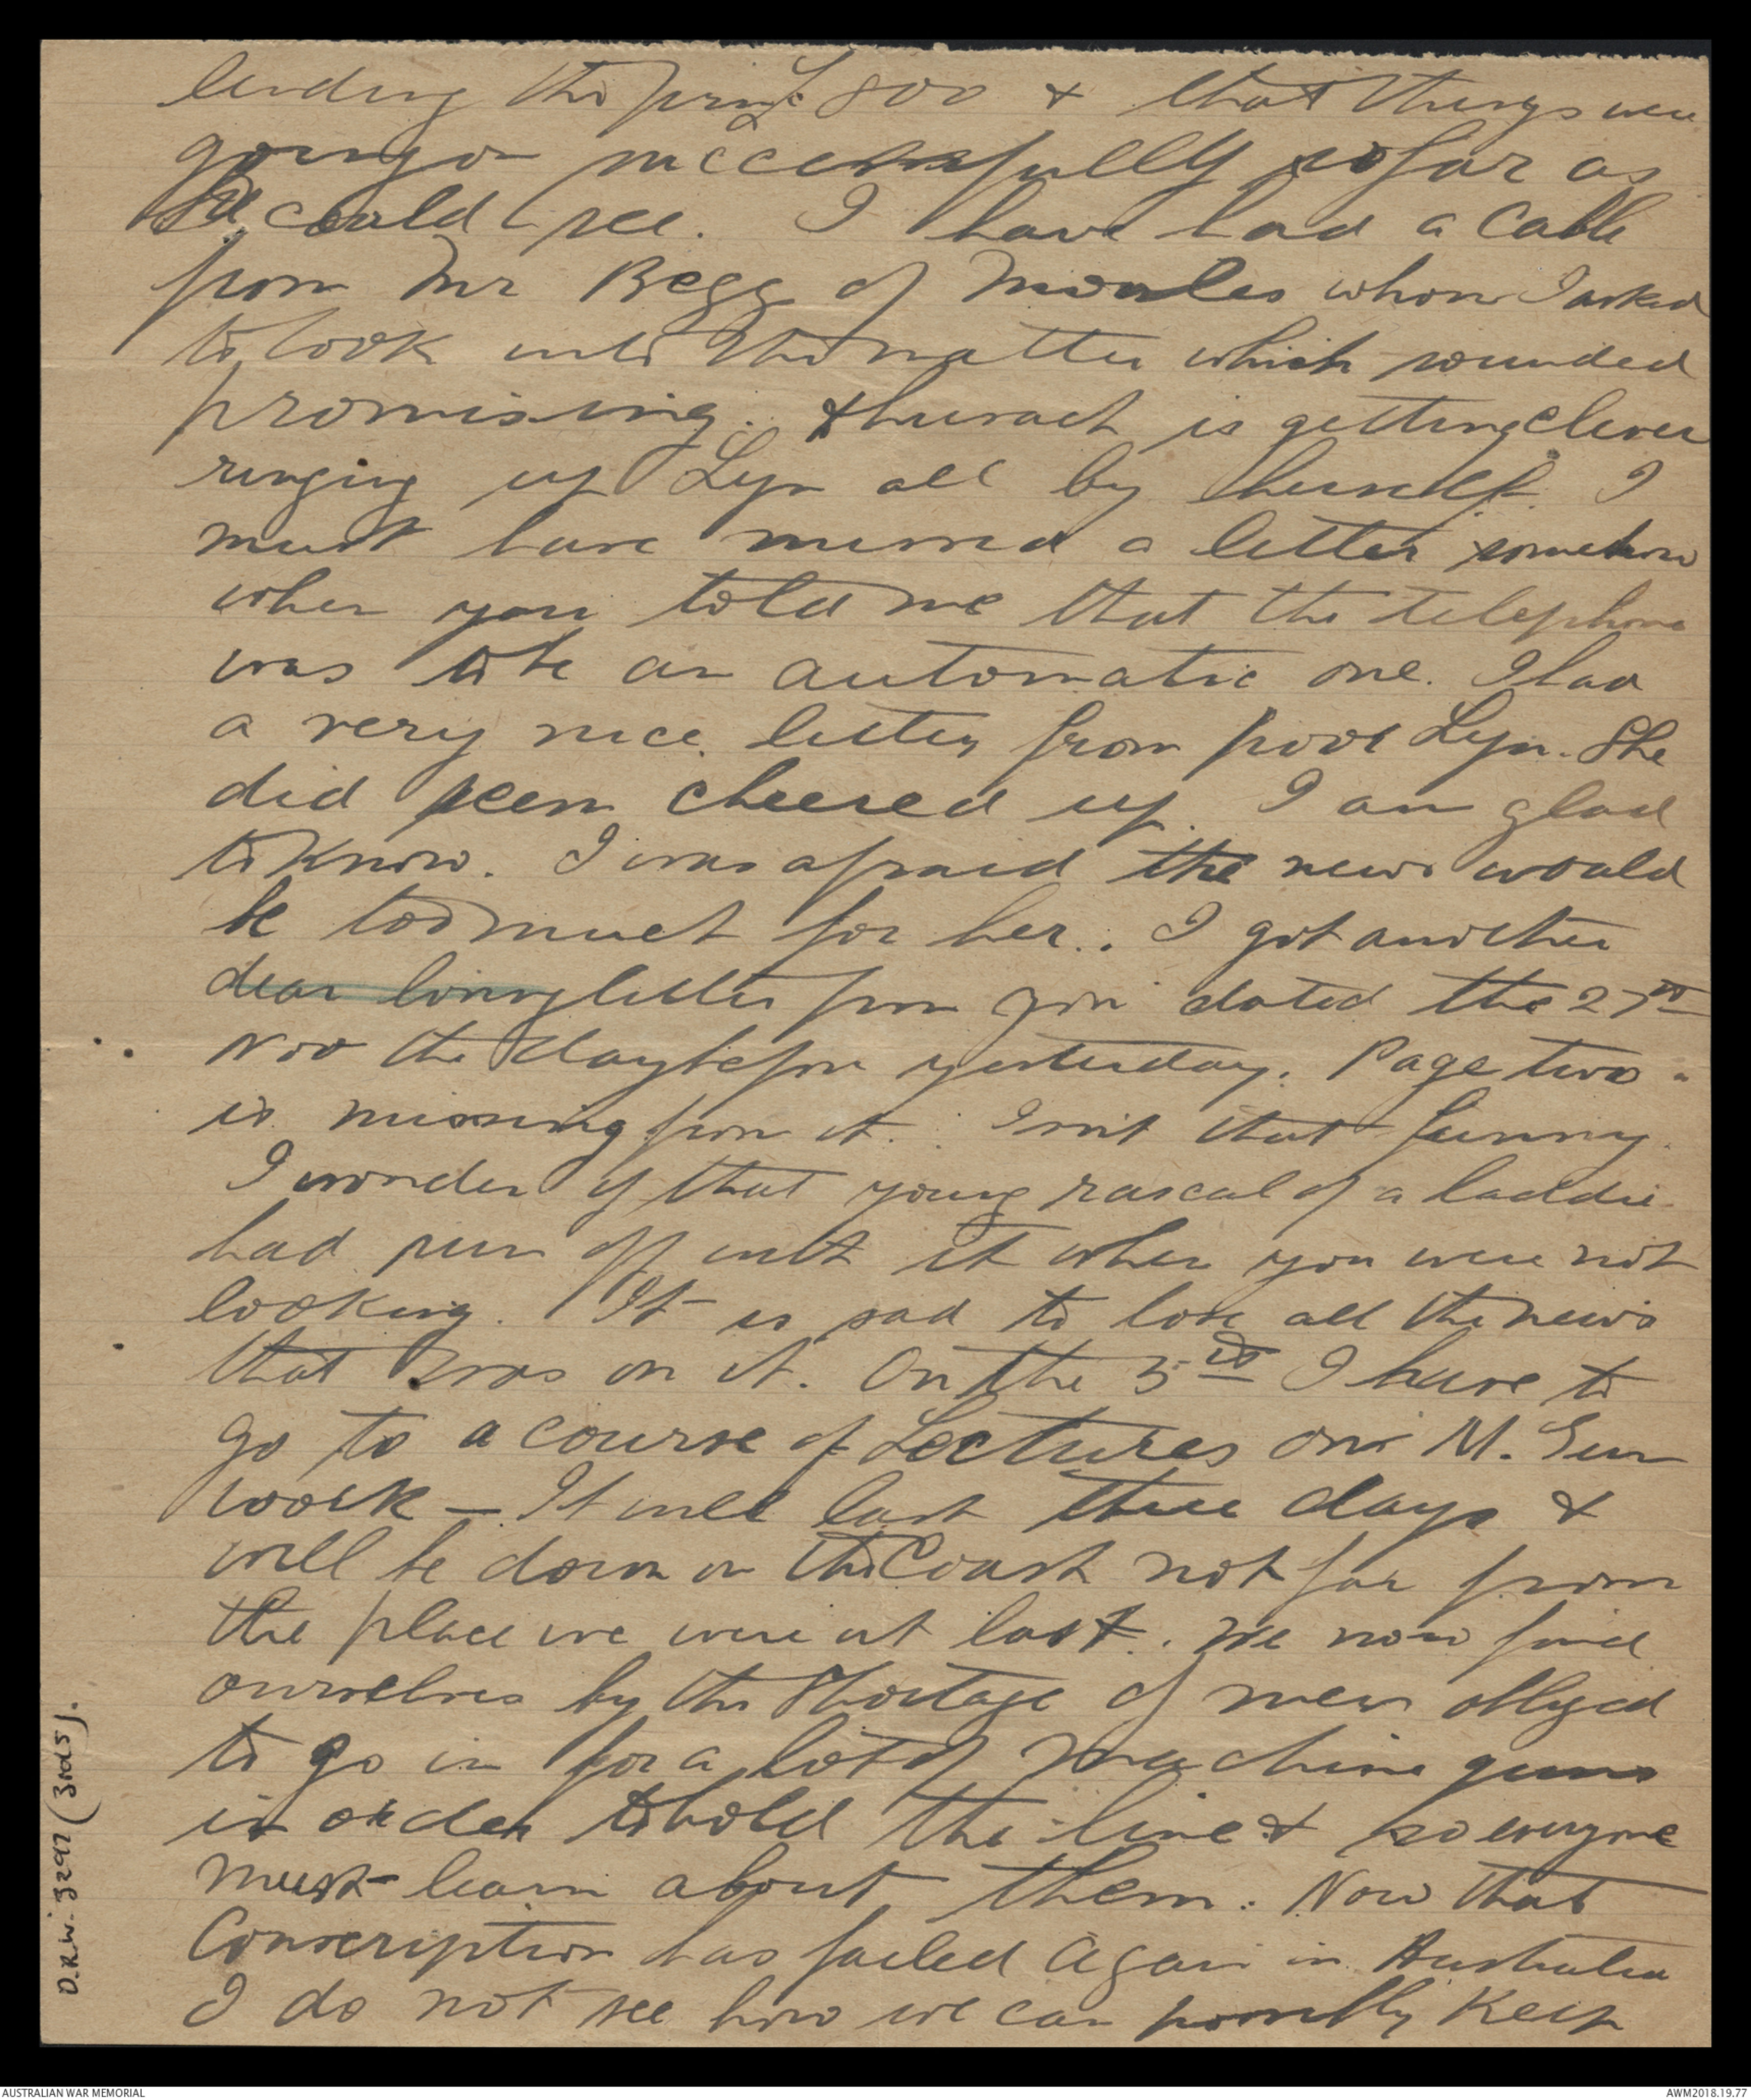 lending the firm £800 & that things were
going on successfully so far as
he could see. I have had a cable
from Mr Begg of Moules whom I asked
to look into the matter which sounded
promising. is getting clever
ringing up Lyn all by herself. I
must have missed a letter somehow
when you told me that the telephone
was to be an automatic one. I had
a very nice letter from poor Lyn. She
did seem cheered up I am glad
to know. I was afraid the news would
be too much for her.. I got another
dear loving letter from you dated the 27th
Nov the day before yesterday. Page two
is missing from it. Isnt that funny.
I wonder if that young rascal of a laddie
had run off with it when you were not
looking. It is sad to lose all the news
that was on it. On the 5th I have to
go to a course of Lectures on M. Gun
work - It will last three days &
will be down on the Coast not far from
the place we were at last. We now find
ourselves by the shortage of men obliged
to go in for a lot of machine guns
in order to hold the line & so everyone
must learn about them. Now that
Conscription has failed again in Australia
I do not see how we can possibly keep
D.R.W. 3297 (3rd S).
AUSTRALIAN WAR MEMORIAL
AWM2018.19.77